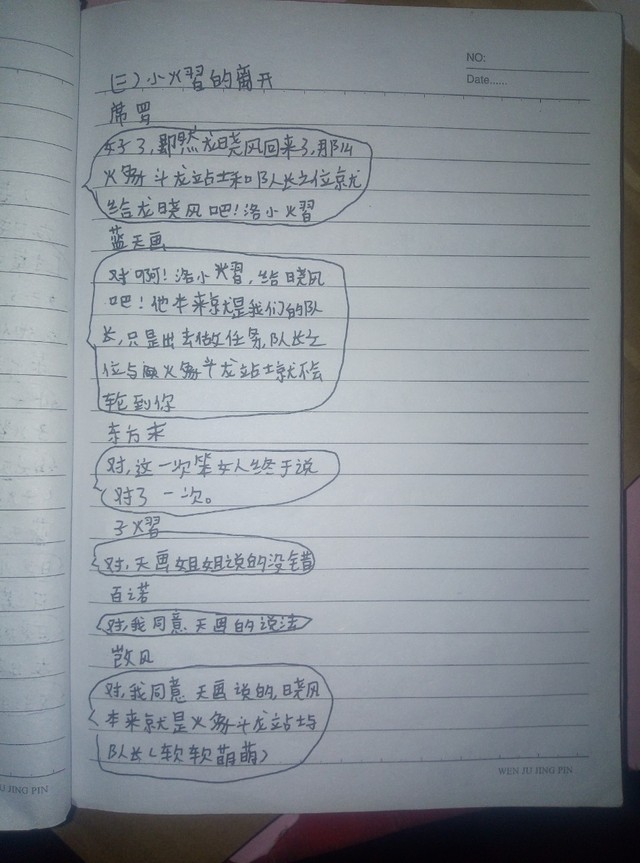 NO:
Date......
(三)小熠的离开
席罗
好了,即然龙晓风回来了,那么
火豫斗龙站士和队长之位京尤
给龙晓风吧!洛小熠
蓝天画
对啊!洛小熠,给晓风
吧!他本来就是我们的队
长,只是出去做任务,队长之
位与火豫斗龙站士就不会
轮到你
东方末
对,这一次笨女人终于说
对了一次。
子熠
对,天画姐姐说的没错
百诺
对,我同意天画的说法
凯风
对,我同意天画说的,晓风
本来就是火豫斗龙站士与
队长(软软萌萌)
U JING PIN
WEN JU JING PIN